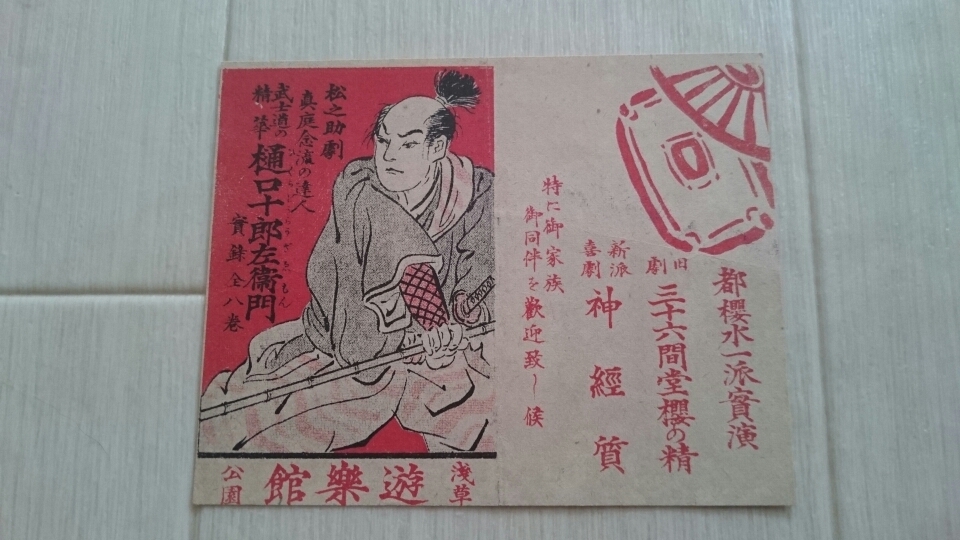 都櫻水一派實演
旧劇
三十六間堂櫻の精
新派
喜劇
神經質
特に御家族
御同伴を歡迎致し候
松之助劇
真庭念流の達人
武士道の
精華
樋口十郎左衞門
ひぐちじうらうざゑもん
實録全八巻
淺草
遊樂館
公園